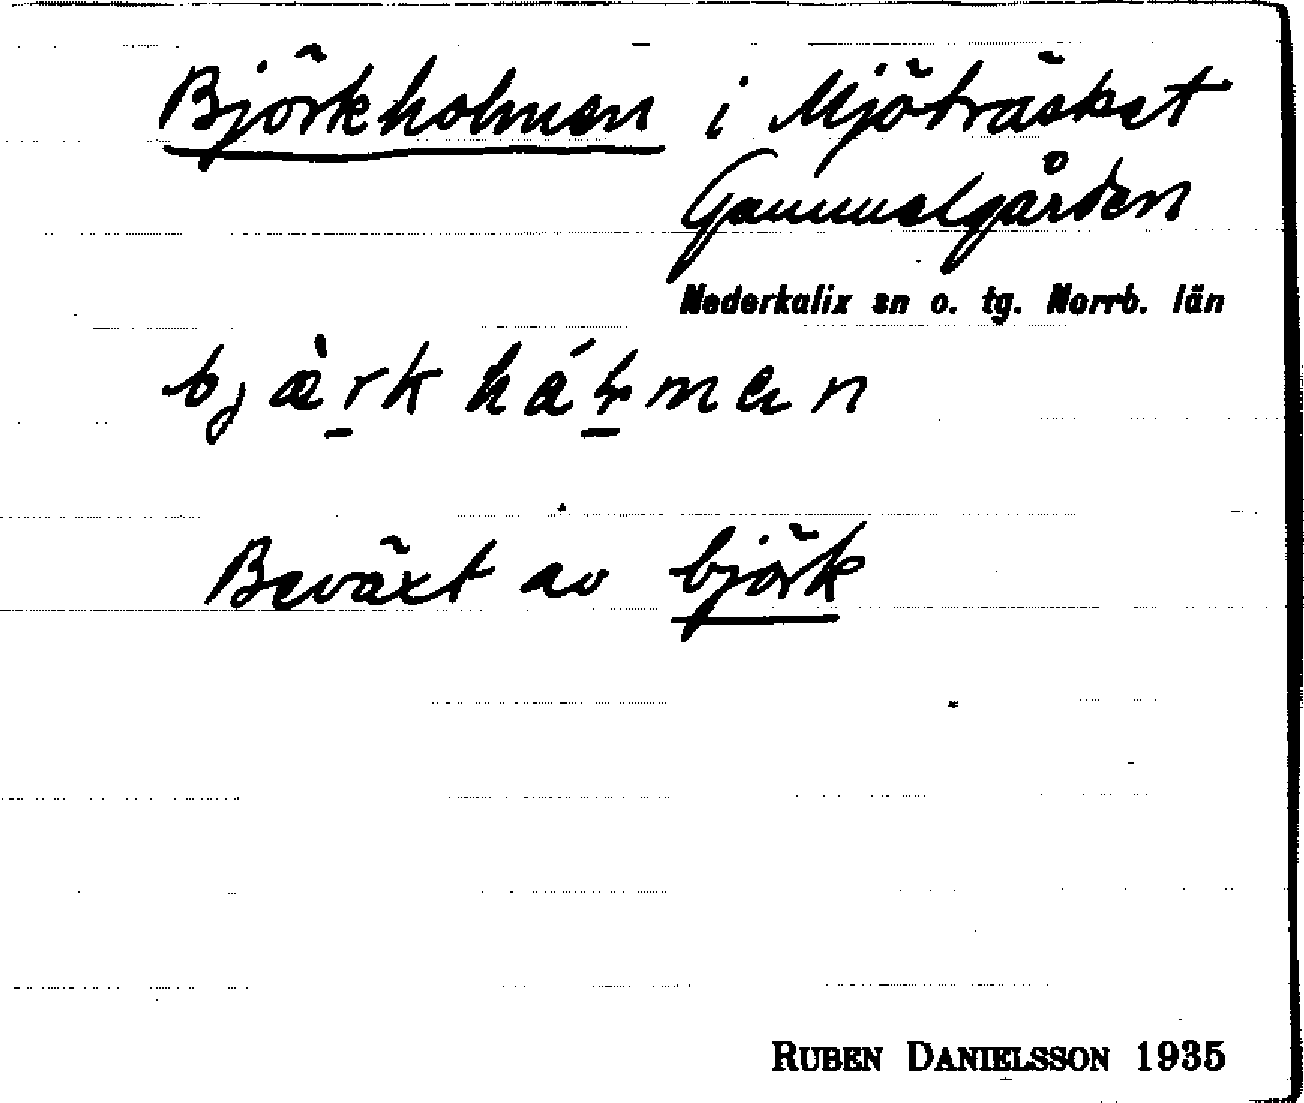 Björkholmen i Mjöträsket
Gammelgården
Nederkalix sn o. tg. Norrb. län
bjæ̀rk
Beväxt av björk
RUBEN DANIELSSON 1935